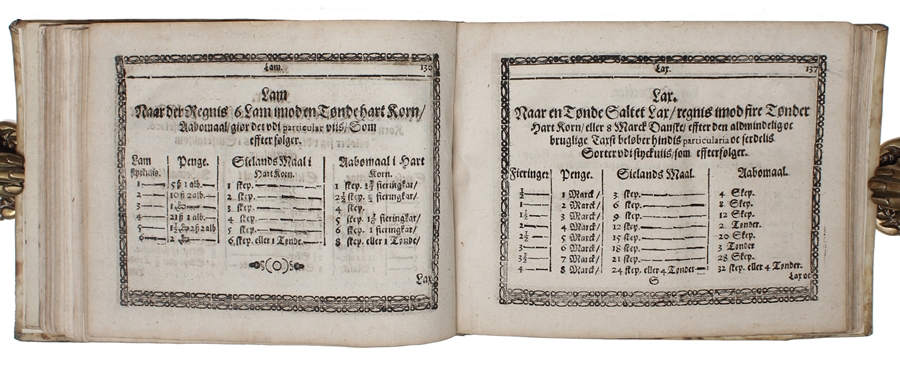 Lam. 136
Lam
Naar der Regnis 6 Lam imod en Tønde hart Korn/
Aabomaal/ giør det vdi particular viis/ Som
effter følger.
Lam Penge. Sielands Maal i Aabomaal i Hart
styckuiis. Hart Korn. Korn.
1 5 ß 1 alb. 1 skep. 1 skep. fieringkar/
2 10 ß 2 alb. 2 skep. 2½ skep. fieringkar/
3 1 3 skep. 4 skep.
4 21 ß 1 alb. 4 skep. 5 skep. fieringkar/
5 2 alb. 5 skep. 6 skep. fieringkar/
6 2 6 skep. eller 1 Tønde. 8 skep. eller 1 Tønde/
Lax
Lax. 137
Lax.
Naar en Tønde Saltet Lax/ regnis imod fire Tønder
Hart Korn/ eller 8 Marck Danske/ effter den aldmindelig oc
bruglige Taxst beløber hindis particularia oc serdelis
Sorter vdi styckuiis/ som effterfølger.
Fieringer Penge. Sielands Maal. Aabomaal.
½ 1 Marck/ 3 skep. 4 Skep.
1 2 Marck/ 6 skep. 8 Skep.
1½ 3 Marck/ 9 skep. 12 Skep.
2 4 Marck/ 12 skep. 2 Tønder.
2½ 5 Marck/ 15 skep. 20 Skep.
3 6 Marck/ 18 skep. 3 Tønder
3½ 7 Marck/ 21 skep. 28 Skep.
4 8 Marck/ 24 skep. eller 4 Tønder 32 skep. eller 4 Tønder.
S Lax oc